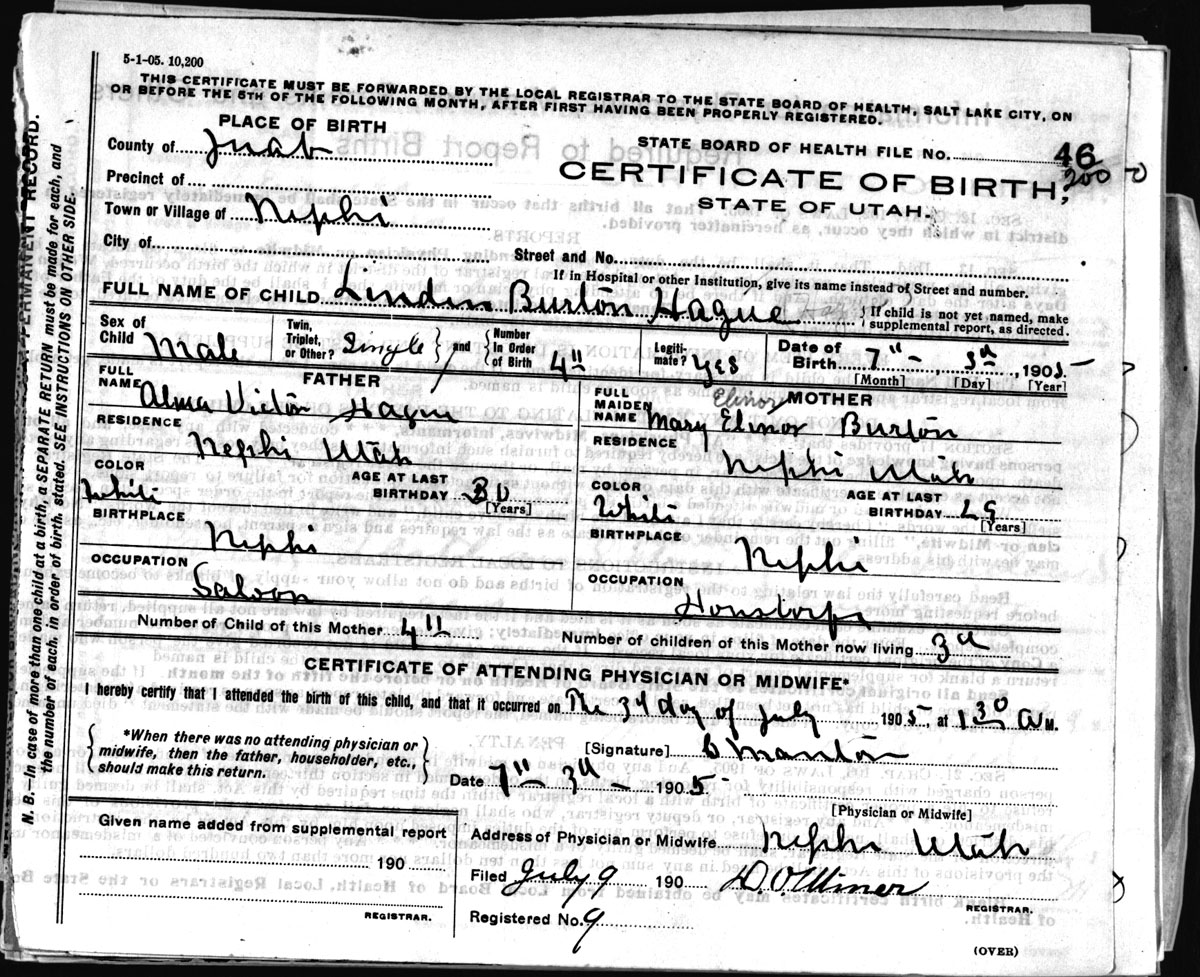 5-1-05. 10,200
THIS CERTIFICATE MUST BE FORWARDED BY THE LOCAL REGISTRAR TO THE STATE BOARD OF HEALTH, SALT LAKE CITY, ON
OR BEFORE THE 5TH OF THE FOLLOWING MONTH, AFTER FIRST HAVING BEEN PROPERLY REGISTERED.
PLACE OF BIRTH
County of Juab
Precinct of
Town or Village of Nephi
City of
STATE BOARD OF HEALTH FILE No. 46
200
CERTIFICATE OF BIRTH,
STATE OF UTAH.
Street and No.
If in Hospital or other Institution, give its name instead of Street and number.
FULL NAME OF CHILD Linden Burton Hague
{ If child is not yet named, make
supplemental report, as directed.
Sex of Child Male
Twin, Triplet, or Other? Single } and { Number In Order of Birth 4"
Legitimate? Yes
Date of Birth 7" 3d, 1905
[Month] [Day] [Year]
FATHER
FULL NAME Alma Victor Hague
RESIDENCE
Nephi Utah
COLOR White
AGE AT LAST BIRTHDAY 30
[Years]
BIRTHPLACE
Nephi
OCCUPATION
Saloon
Elinor
MOTHER
FULL MAIDEN NAME Mary Elinor Burton
RESIDENCE
Nephi Utah
COLOR White
AGE AT LAST BIRTHDAY 29
[Years]
BIRTHPLACE
Nephi
OCCUPATION
Number of Child of this Mother 4"
Number of children of this Mother now living 3d
CERTIFICATE OF ATTENDING PHYSICIAN OR MIDWIFE*
I hereby certify that I attended the birth of this child, and that it occurred on The 3d day of July 1905 at 1 30 A M.
{ *When there was no attending physician or
midwife, then the father, householder, etc.,
should make this return. }
[Signature]
Date 7" 3d 1905.
[Physician or Midwife]
Given name added from supplemental report
190
REGISTRAR.
Address of Physician or Midwife Nephi Utah
Filed July 9 190
REGISTRAR.
Registered No. 9
(OVER)
N. B.—In case of more than one child at a birth, a SEPARATE RETURN must be made for each, and
the number of each, in order of birth, stated. SEE INSTRUCTIONS ON OTHER SIDE.
PERMANENT RECORD.